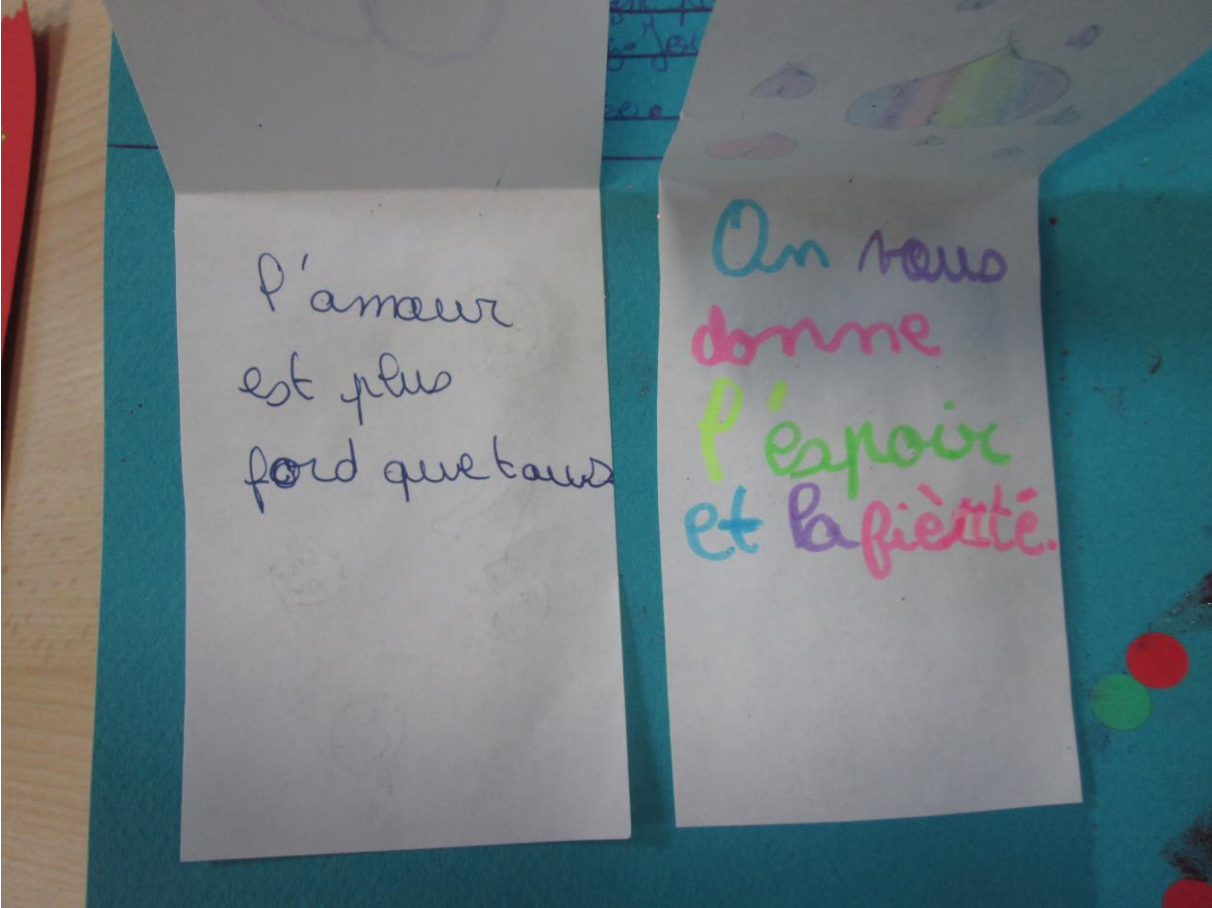 l'amour
est plus
ford que tous
On vous
donne
l'éspoir
et la fièrté.